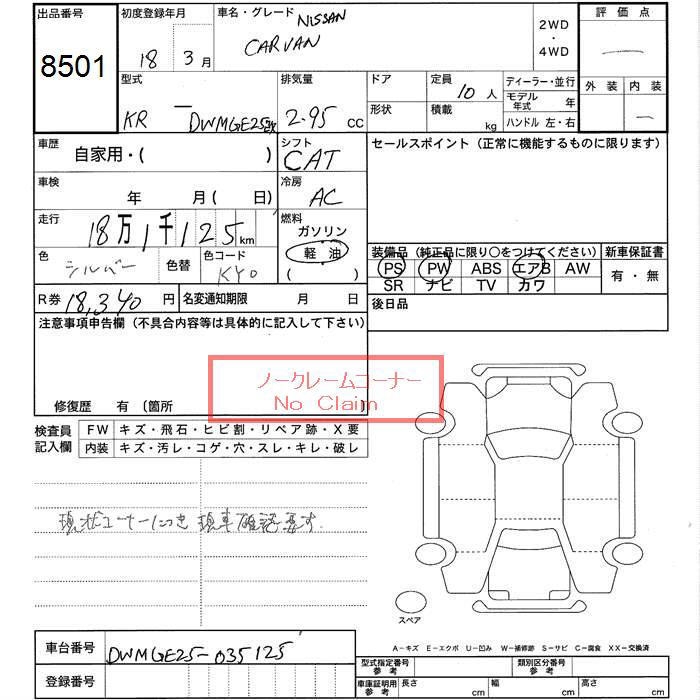 出品番号 初度登録年月 車名・グレード NISSAN 2WD 評価点
8501 18 3月 CARVAN ・ 4WD —
外装 内装
型式 排気量 ドア 定員 ディーラー・並行
KR — DWMGE25改 2.95 CC 10人 モデル年式 年 —
形状 積載 kg ハンドル 左・右
車歴 自家用・( ) シフト CAT セールスポイント(正常に機能するものに限ります)
車検 年 月( 日) 冷房 AC
走行 18万1千125km 燃料 ガソリン
軽油
( )
色 シルバー 色替 色コード KY0
装備品(純正品に限り○をつけてください) 新車保証書
PS PW ABS エアB AW 有・無
SR ナビ TV カワ
R券 18,340円 名変通知期限 月 日 後日品
注意事項申告欄(不具合内容等は具体的に記入して下さい)
ノークレームコーナー
No Claim
修復歴 有(箇所 )
検査員記入欄 FW キズ・飛石・ヒビ割・リペア跡・X要
内装 キズ・汚レ・コゲ・穴・スレ・キレ・破レ
現状コーナーにつき 現車確認要す.
スペア
A-キズ E-エクボ U-凹み W-補修跡 S-サビ C-腐食 XX-交換済
車台番号 DWMGE25-035125
登録番号
型式指定番号 参考 類別区分番号 参考
車庫証明用 参考 長さ cm 幅 cm 高さ cm